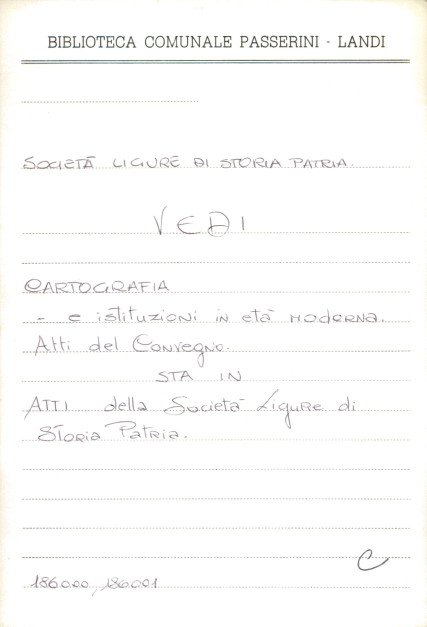 BIBLIOTECA COMUNALE PASSERINI - LANDI
SOCIETÀ LIGURE DI STORIA PATRIA.
VEDI
CARTOGRAFIA
- e istituzioni in età moderna.
Atti del Convegno.
STA IN
ATTI della Società Ligure di
Storia Patria.
C
186000, 186001